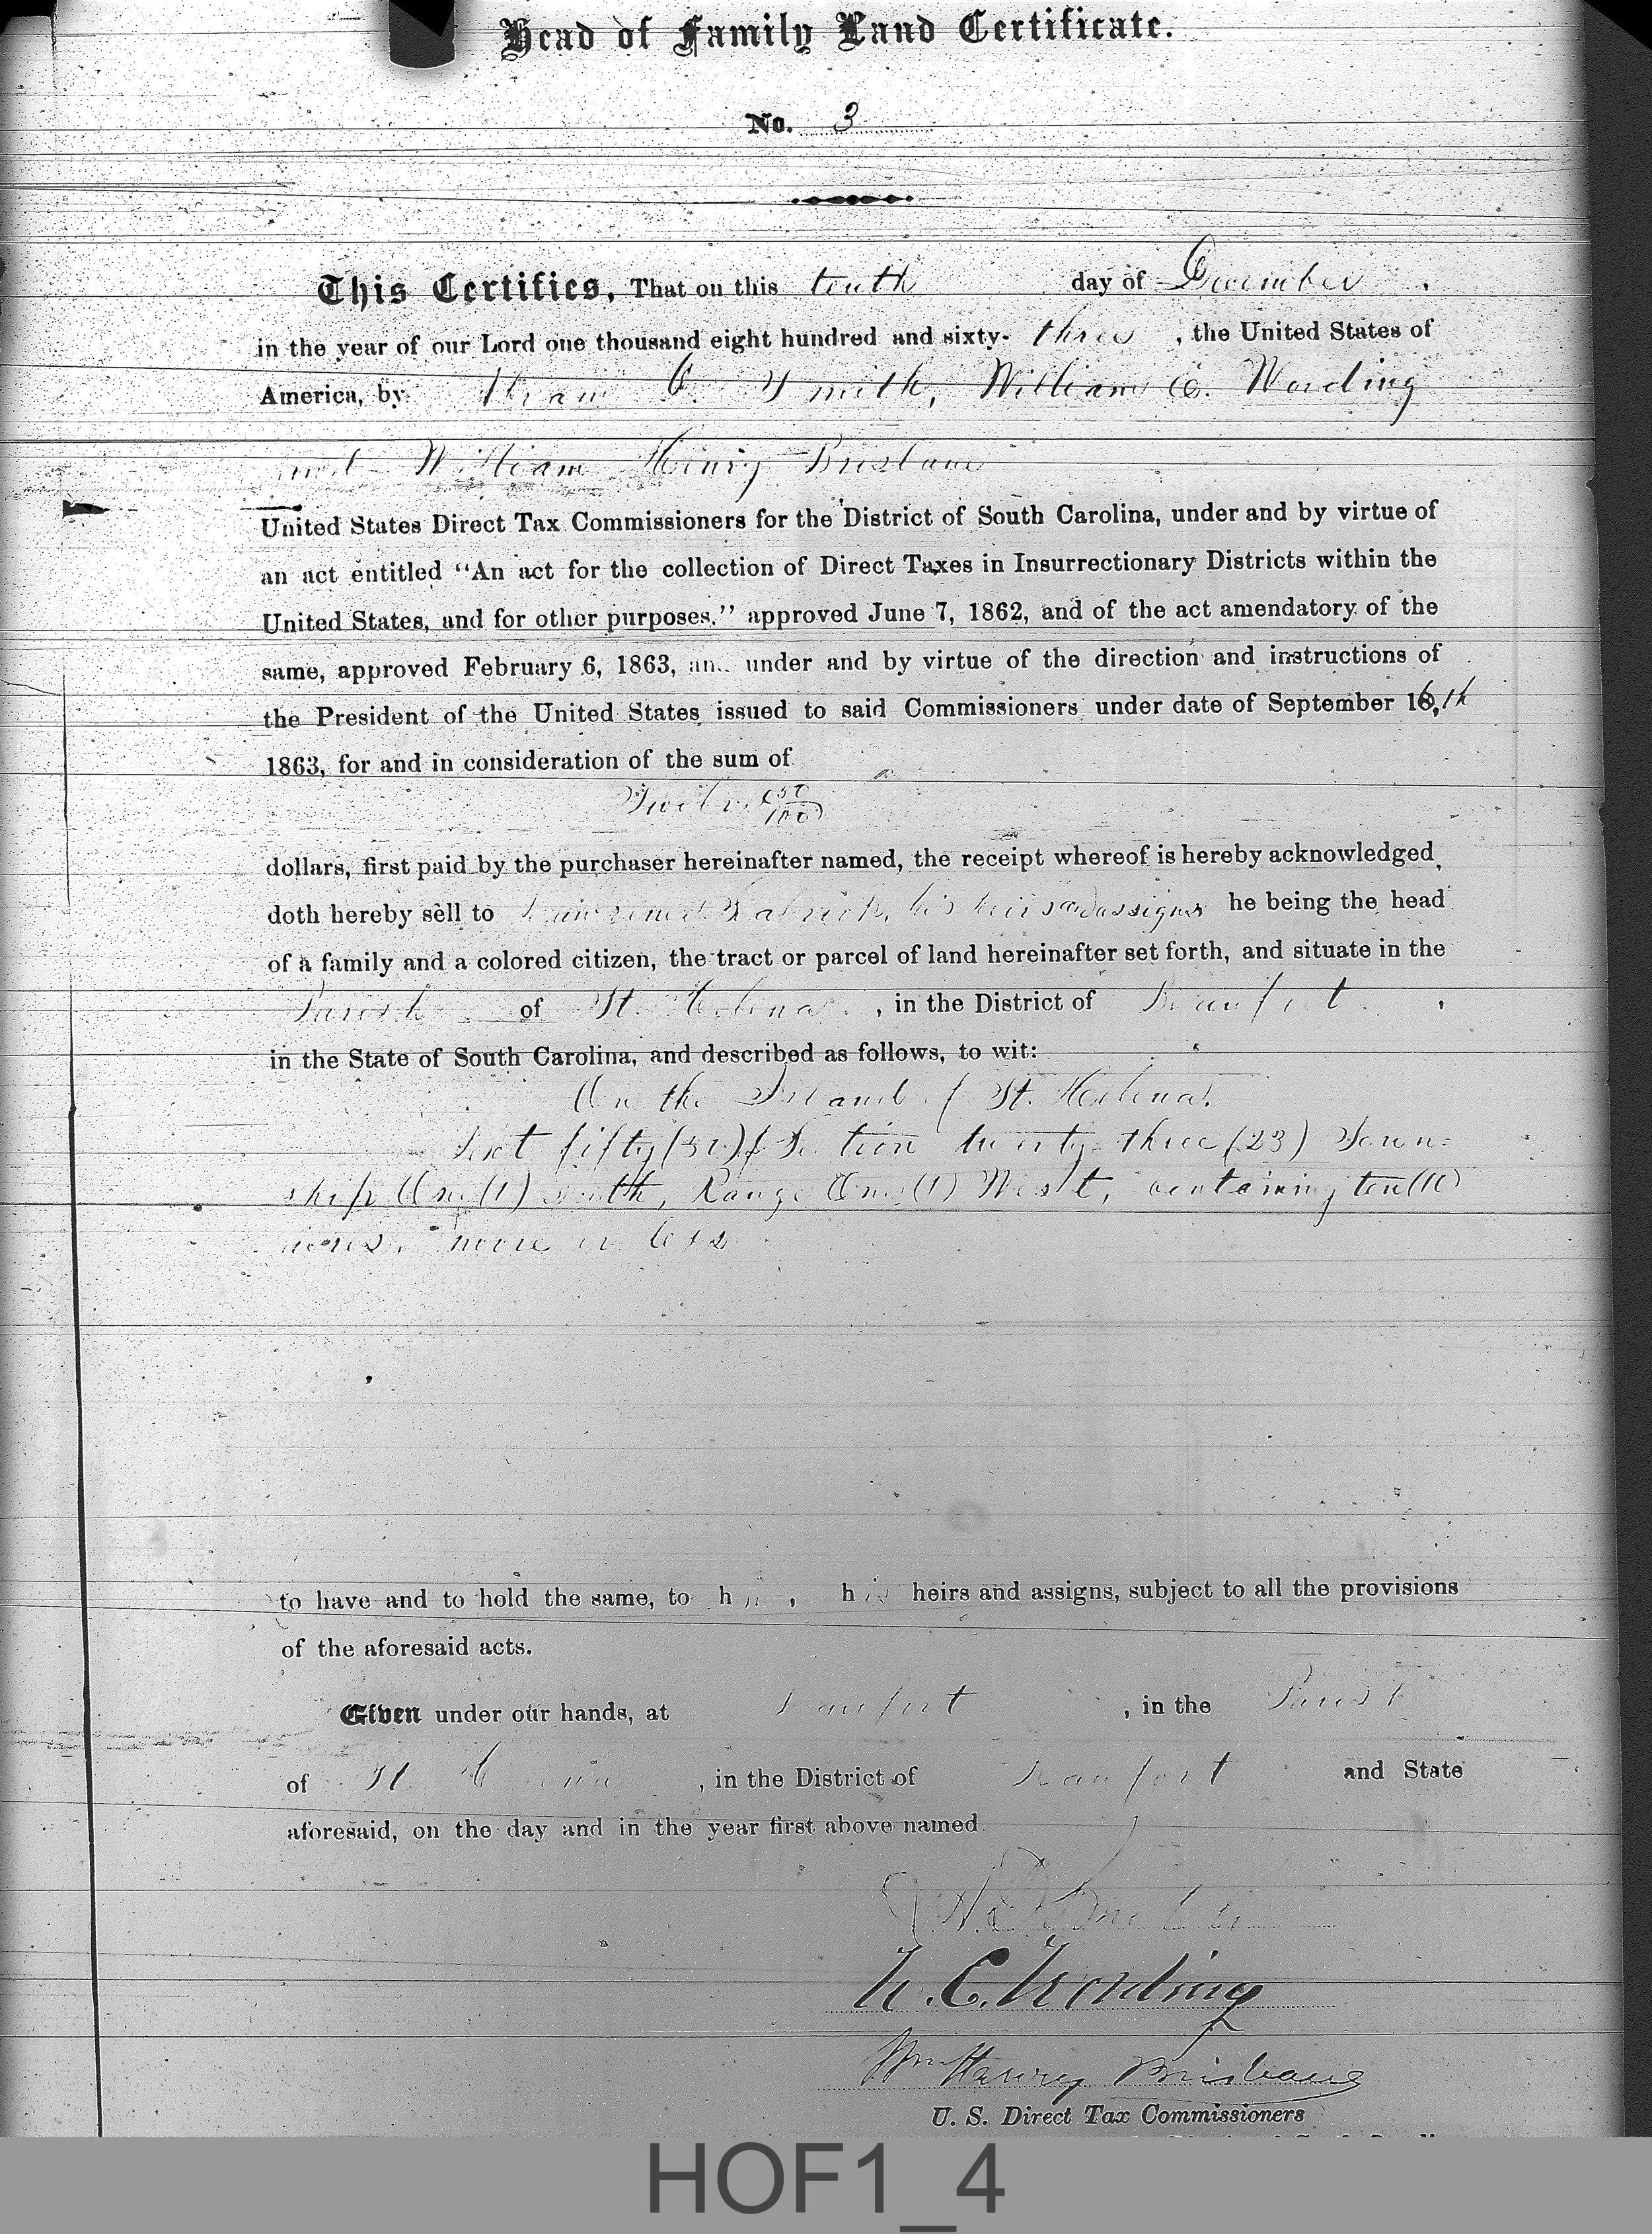 Head of Family Land Certificate.
No. 3
This Certifies, That on this tenth day of December
in the year of our Lord one thousand eight hundred and sixty- three, the United States of
America, by Smith, William C. Wording
and William Henry Brisbane
United States Direct Tax Commissioners for the District of South Carolina, under and by virtue of
an act entitled "An act for the collection of Direct Taxes in Insurrectionary Districts within the
United States, and for other purposes." approved June 7, 1862, and of the act amendatory of the
same, approved February 6, 1863, and under and by virtue of the direction and instructions of
the President of the United States issued to said Commissioners under date of September 16,th
1863, for and in consideration of the sum of
Twelve
dollars, first paid by the purchaser hereinafter named, the receipt whereof is hereby acknowledged,
doth hereby sell to his heirs and assigns he being the head
of a family and a colored citizen, the tract or parcel of land hereinafter set forth, and situate in the
Parish of St. Helena, in the District of Beaufort,
in the State of South Carolina, and described as follows, to wit:
On the Island of St. Helena.
Lot fifty (50) of Section twenty-three (23) Town=
ship One (1) South, Range One (1) West, containing ten (10)
acres, more or less
to have and to hold the same, to him, his heirs and assigns, subject to all the provisions
of the aforesaid acts.
Given under our hands, at Beaufort, in the Parish
of St. Helena, in the District of Beaufort and State
aforesaid, on the day and in the year first above named
W. C. Wording
Wm Henry Brisbane
U. S. Direct Tax Commissioners
HOF1_4